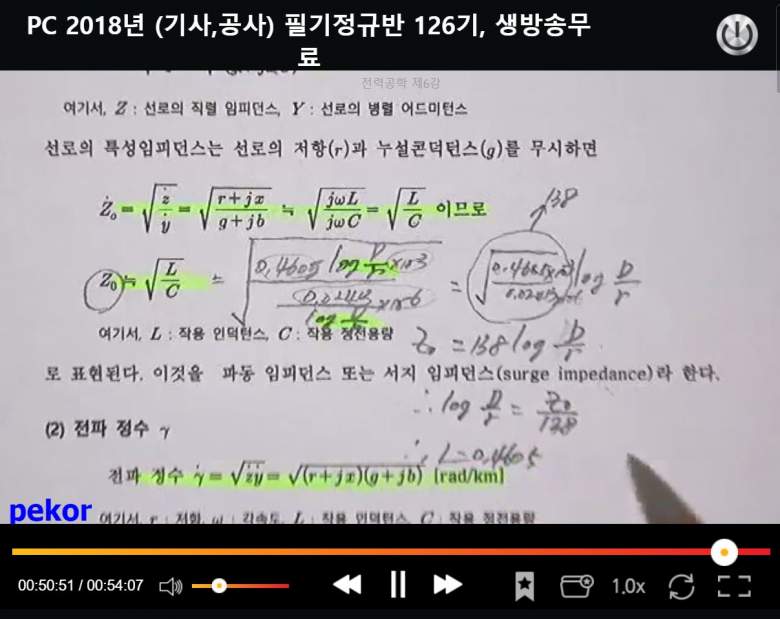 PC 2018년 (기사,공사) 필기정규반 126기, 생방송무
료
전력공학 제6강
여기서, Z : 선로의 직렬 임피던스, Y : 선로의 병렬 어드미턴스
선로의 특성임피던스는 선로의 저항(r)과 누설콘덕턴스(g)를 무시하면
Ż₀ = √(ż/ẏ) = √((r+jx)/(g+jb)) ≒ √(jωL/jωC) = √(L/C) 이므로
138
Z₀ ≒ √(L/C) = √(0.4605 log D/r ×10⁻³ / (0.02413/log D/r ×10⁻⁶)) = √(0.4605×10⁻³/0.02413×10⁻⁶) log D/r
여기서, L : 작용 인덕턴스, C : 작용 정전용량
Z₀ = 138 log D/r
로 표현된다. 이것을 파동 임피던스 또는 서지 임피던스(surge impedance)라 한다.
∴ log D/r = Z₀/138
(2) 전파 정수 γ
∴ L = 0.4605
전파 정수 γ̇ = √(żẏ) = √((r+jx)(g+jb)) [rad/km]
pekor
여기서, r : 저항, ω : 각속도, L : 작용 인덕턴스, C : 작용 정전용량
00:50:51 / 00:54:07
1.0x